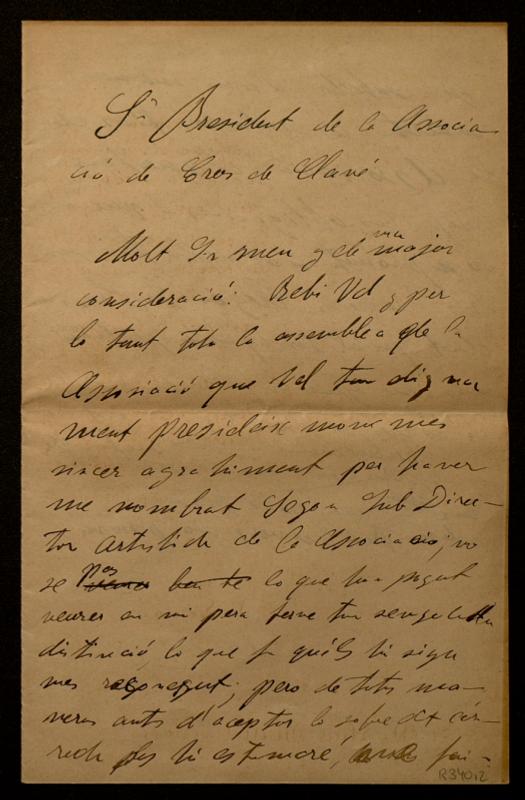 Sr President de la Associa-
ció de Coros de Clavé
Molt Sr meu y de ma major
consideració: Rebi Vd y per
lo tant tota la assemblea de la
Associació que Vd tan digna
ment presideix mon mes
sincer agrahiment per haver
me nombrat Segon Sub Direc-
tor artistich de la Associació; no
se pas lo que han pogut
veurer en mi pera ferme tan senyalada
distinció, lo que fa quels hi sigu
mes reconegut; pero de tots ma-
neras ants d'aceptar lo sobre dit cár-
rech els hi estimaré,
R340.2